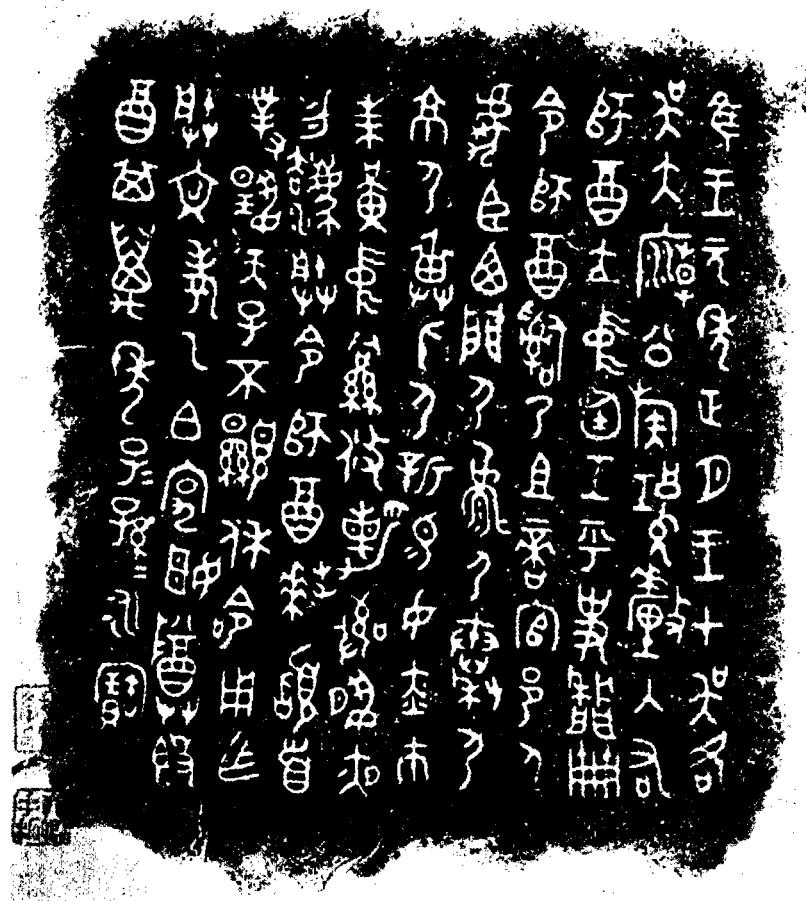 隹王元年正月王才吳各
吳大廟公族𤔲釐入右
師酉立中廷王乎史牆冊
命師酉嗣乃且啻官邑人
虎臣西門尸尸秦尸
京尸畀尸新易女赤市
朱黃中絅攸勒敬夙夜勿
灋朕令師酉拜稽首
對揚天子不顯休令用乍
朕文考乙白宄姬尊簋
酉其萬年子子孫孫永寶